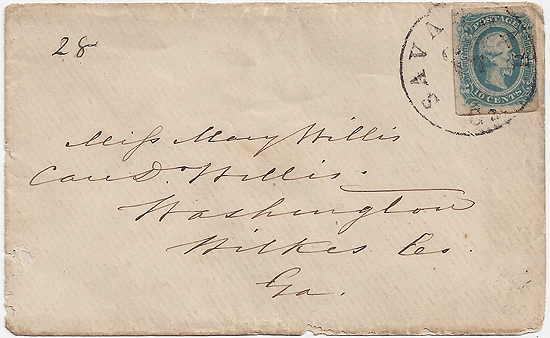 28
POSTAGE
SAVA
10 CENTS
Ga
Miss Mary Willis
Care Dr. Willis.
Washington
Wilkes Co.
Ga.